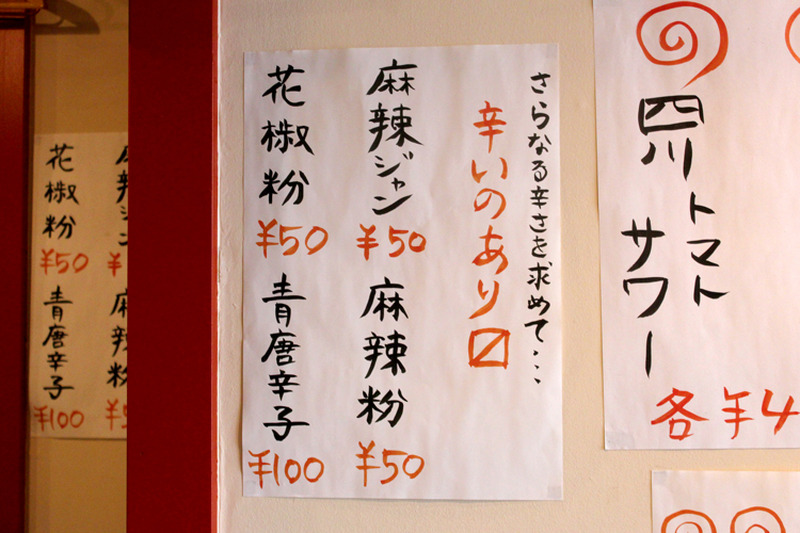 さらなる辛さを求めて・・・
辛いのあり〼
麻辣ジャン
¥50
麻辣粉
¥50
花椒粉
¥50
青唐辛子
¥100
四川トマト
サワー
各¥4
花椒粉
¥50
青唐辛子
¥100